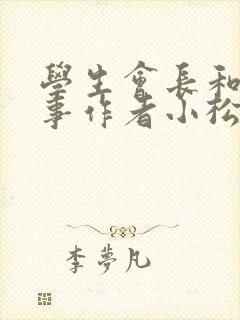 學生會長和
事作者小松
李夢凡